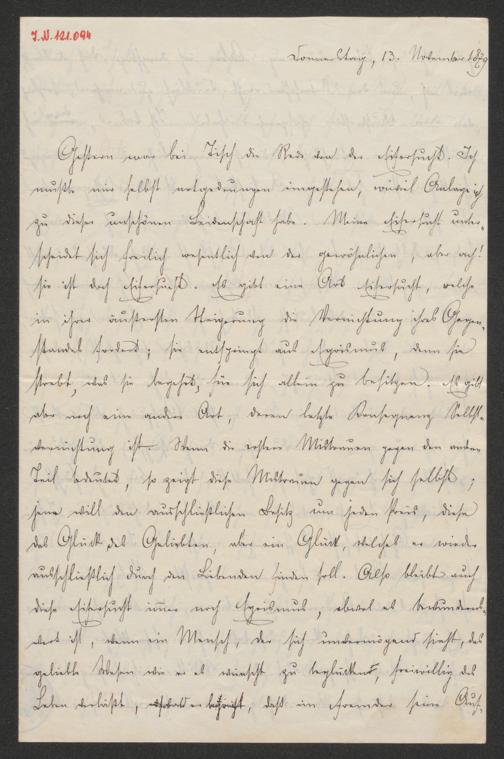 J.N. 121.094
Donnerstag, 13. November 1879
Gestern war bei Tisch die Rede von der Eifersucht. Ich
mußte mir selbst notgedrungen eingestehen, wieviel Anlage ich
zu dieser unschönen Leidenschaft habe. Meine Eifersucht unter-
scheidet sich freilich wesentlich von der gewöhnlichen, aber ach!
sie ist doch Eifersucht. Es gibt eine Art Eifersucht, welche
in ihrer äußersten Steigerung die Vernichtung ihres Gegen-
standes fordert; sie entspringt aus Egoismus, denn sie
strebt, was sie begehrt, für sich allein zu besitzen. Es gibt
aber noch eine andere Art, deren letzte Konsequenz Selbst-
vernichtung ist. Wenn die erstere Mistrauen gegen den andern
Teil bedeutet, so zeigt diese Mistrauen gegen sich selbst;
jene will den ausschließlichen Besitz um jeden Preis, diese
das Glück des Geliebten, aber ein Glück, welches er wieder
ausschließlich durch den Liebenden finden soll. Also bleibt auch
diese Eifersucht immer noch Egoismus, obwol es bewunderns-
wert ist, wenn ein Mensch, der sich unvermögend sieht, das
geliebte Wesen wie er es wünscht zu beglücken, freiwillig das
Leben verläßt, sobald er daß ein Fremder seine Auf-